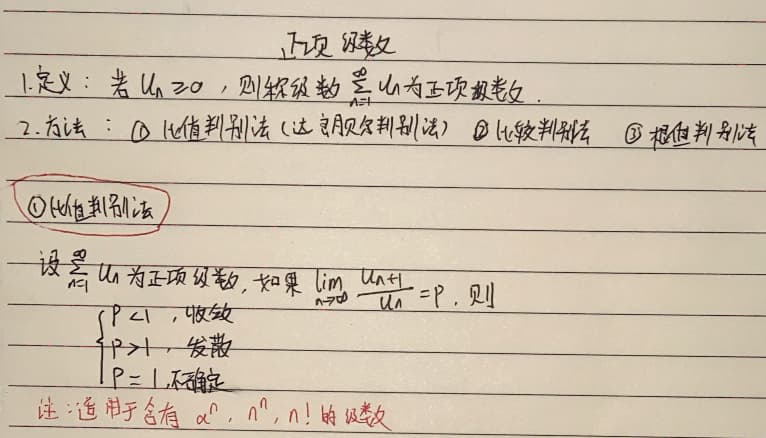 正项级数
1.定义：若 Uₙ≥0，则称级数 ∑_{n=1}^{∞} Uₙ 为正项级数.
2.方法：① 比值判别法（达朗贝尔判别法） ② 比较判别法 ③ 根值判别法
①比值判别法
设 ∑_{n=1}^{∞} Uₙ 为正项级数, 如果 lim_{n→∞} Uₙ₊₁/Uₙ = P, 则
P<1，收敛
P>1，发散
P=1,不确定
注：适用于含有 αⁿ, nⁿ, n! 的级数